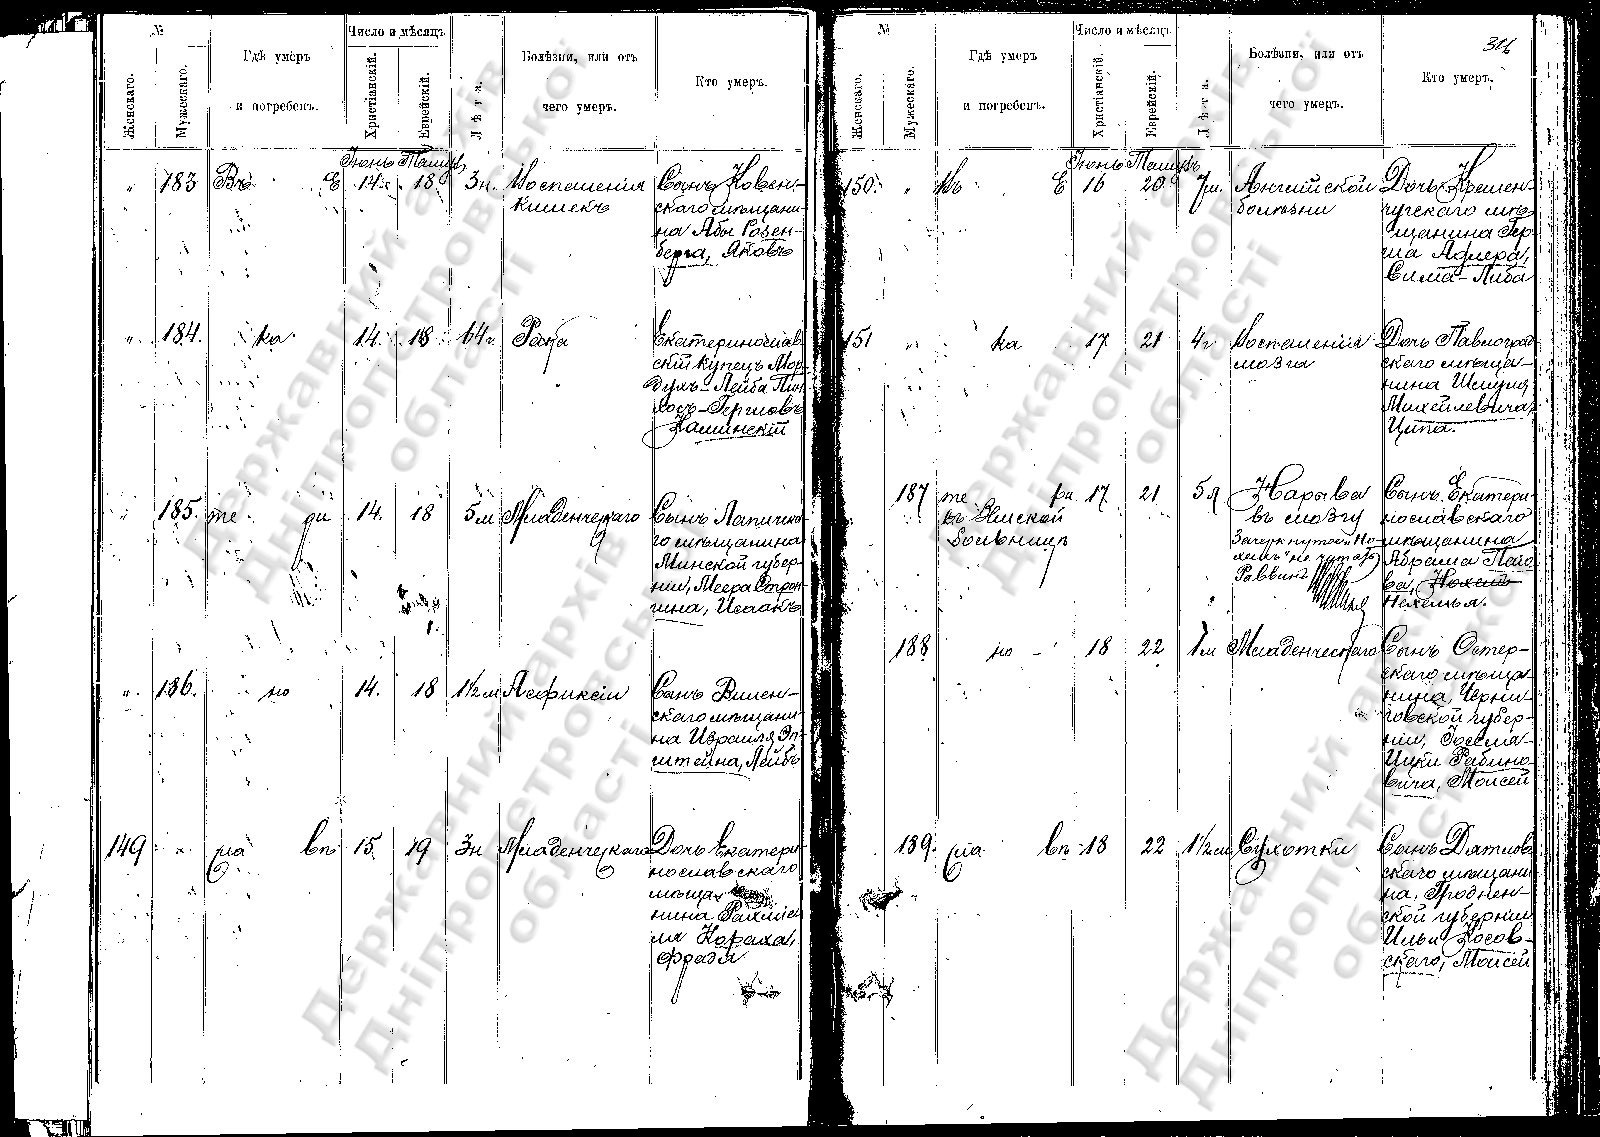 №
Число и мѣсяцъ
Женскаго.
Мужескаго.
Гдѣ умеръ
и погребенъ.
Христіанскій.
Еврейскій.
Лѣта.
Болѣзни, или отъ
чего умеръ.
Кто умеръ.
Іюнь Тамузъ
" 183 Въ Е 14 18 3н. Воспаленія
кишекъ
Сынъ Ковен-
скаго мѣщани-
на Абы Розен-
берга, Яковъ
" 184. ка 14. 18 64г. Рака
Екатеринослав
скій купецъ Мор-
духъ-Лейба Пин-
хосъ-Гершовъ
Каминскій
" 185. те ри 14. 18 5м Младенческаго
Сынъ
го мѣщанина
Минской губер-
ніи, Меера
гина, Исаакъ
" 186. но 14. 18 1½м Асфиксіи
Сынъ Вилен-
скаго мѣщани-
на Израиля Эп-
штейна, Лейбъ
149 " сла вѣ 15. 19 3н Младенческаго
Дочь Екатери-
нославскаго
мѣща-
нина Рахмі-
ля Кораха,
Фрадя
№
Число и мѣсяцъ
316
Женскаго.
Мужескаго.
Гдѣ умеръ
и погребенъ.
Христіанскій.
Еврейскій.
Лѣта.
Болѣзни, или отъ
чего умеръ.
Кто умеръ.
Іюнь Тамузъ
150. " Въ Е 16 20 7м. Англійской
болѣзни
Дочь Кремен-
чугскаго мѣ-
щанина Гер-
ша Адлера,
Сима-Либа
151 " ка 17 21 4г Воспаленія
мозга
Дочь Павлоград-
скаго мѣща-
нина Шмуля
Михелевича,
Ципа.
187 те ри 17 21 5д Нарыва
въ Земской
больницѣ
въ мозгу
Зачеркнутое "Но-
хемъ" не читать
Раввинъ
Сынъ Екатери-
нославскаго
мѣщанина
Абрама
ва, Нохемъ
Нехемья.
188 но 18 22 1м Младенческаго
Сынъ Остер-
скаго мѣща-
нина, Черни-
говской губер-
ніи, Іосела-
Ицки Рабино-
вича, Моисей
189. сла вѣ 18 22 1½м Сухотки
Сынъ Дятлов-
скаго мѣщани-
на, Гроднен-
ской губерніи
Ильи Косов-
скаго, Моисей
Державний архів
Дніпропетровської
області